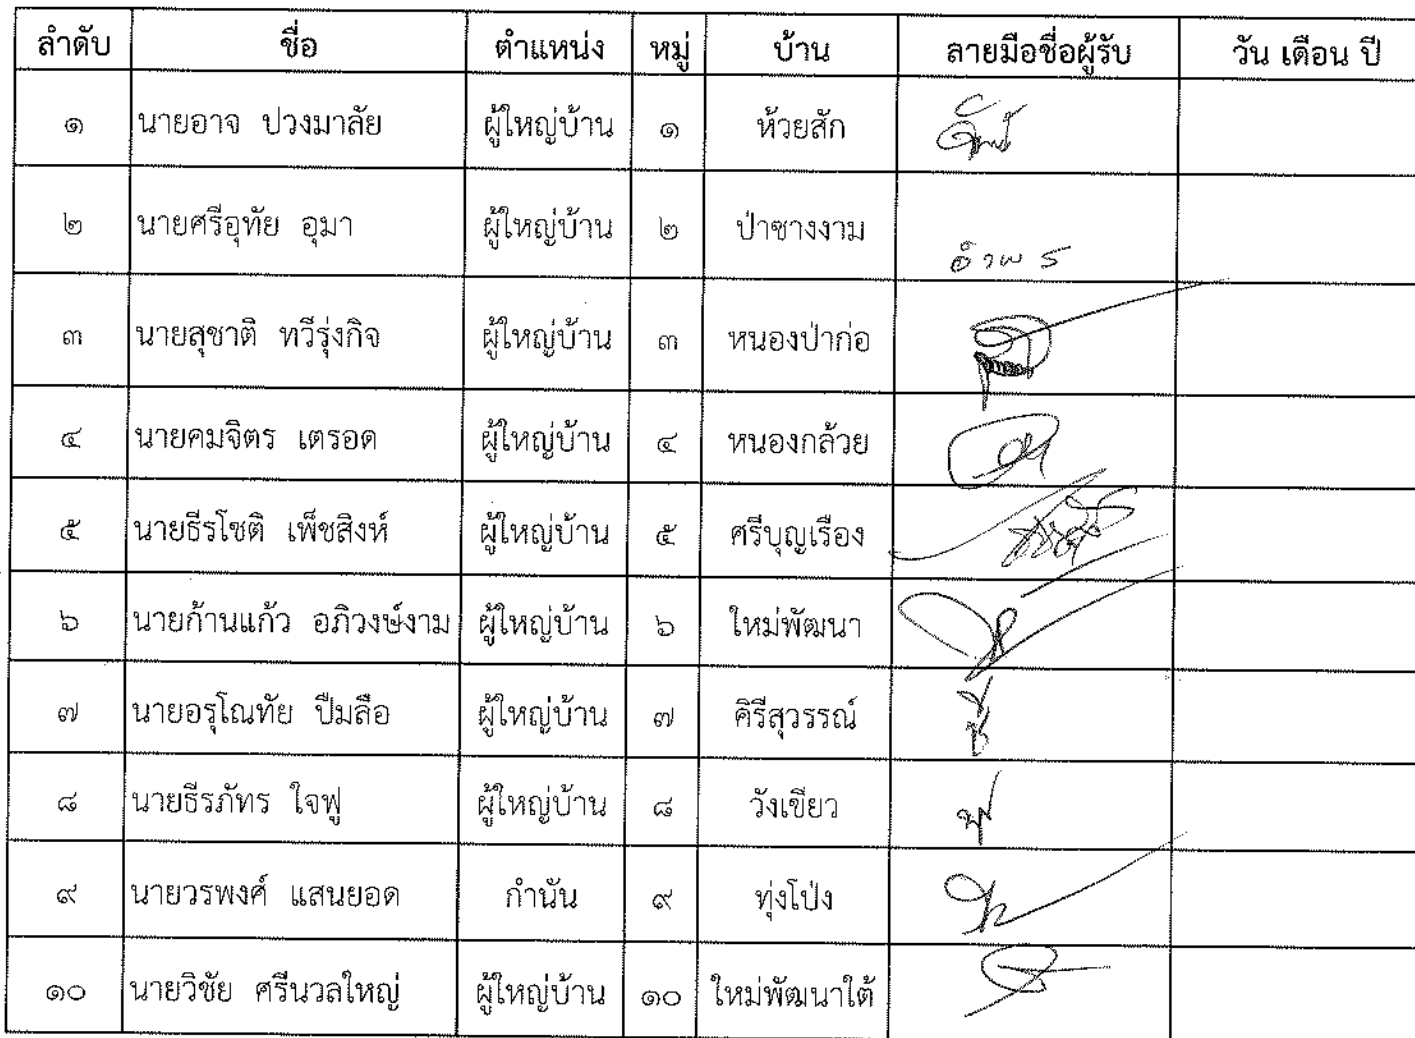 ลำดับ ชื่อ ตำแหน่ง หมู่ บ้าน ลายมือชื่อผู้รับ วัน เดือน ปี
๑ นายอาจ ปวงมาลัย ผู้ใหญ่บ้าน ๑ ห้วยสัก
๒ นายศรีอุทัย อุมา ผู้ใหญ่บ้าน ๒ ป่าซางงาม
๓ นายสุชาติ ทวีรุ่งกิจ ผู้ใหญ่บ้าน ๓ หนองป่าก่อ
๔ นายคมจิตร เตรอด ผู้ใหญ่บ้าน ๔ หนองกล้วย
๕ นายธีรโชติ เพ็ชสิงห์ ผู้ใหญ่บ้าน ๕ ศรีบุญเรือง
๖ นายก้านแก้ว อภิวงษ์งาม ผู้ใหญ่บ้าน ๖ ใหม่พัฒนา
๗ นายอรุโณทัย ปืมลือ ผู้ใหญ่บ้าน ๗ คิรีสุวรรณ์
๘ นายธีรภัทร ใจฟู ผู้ใหญ่บ้าน ๘ วังเขียว
๙ นายวรพงศ์ แสนยอด กำนัน ๙ ทุ่งโป่ง
๑๐ นายวิชัย ศรีนวลใหญ่ ผู้ใหญ่บ้าน ๑๐ ใหม่พัฒนาใต้